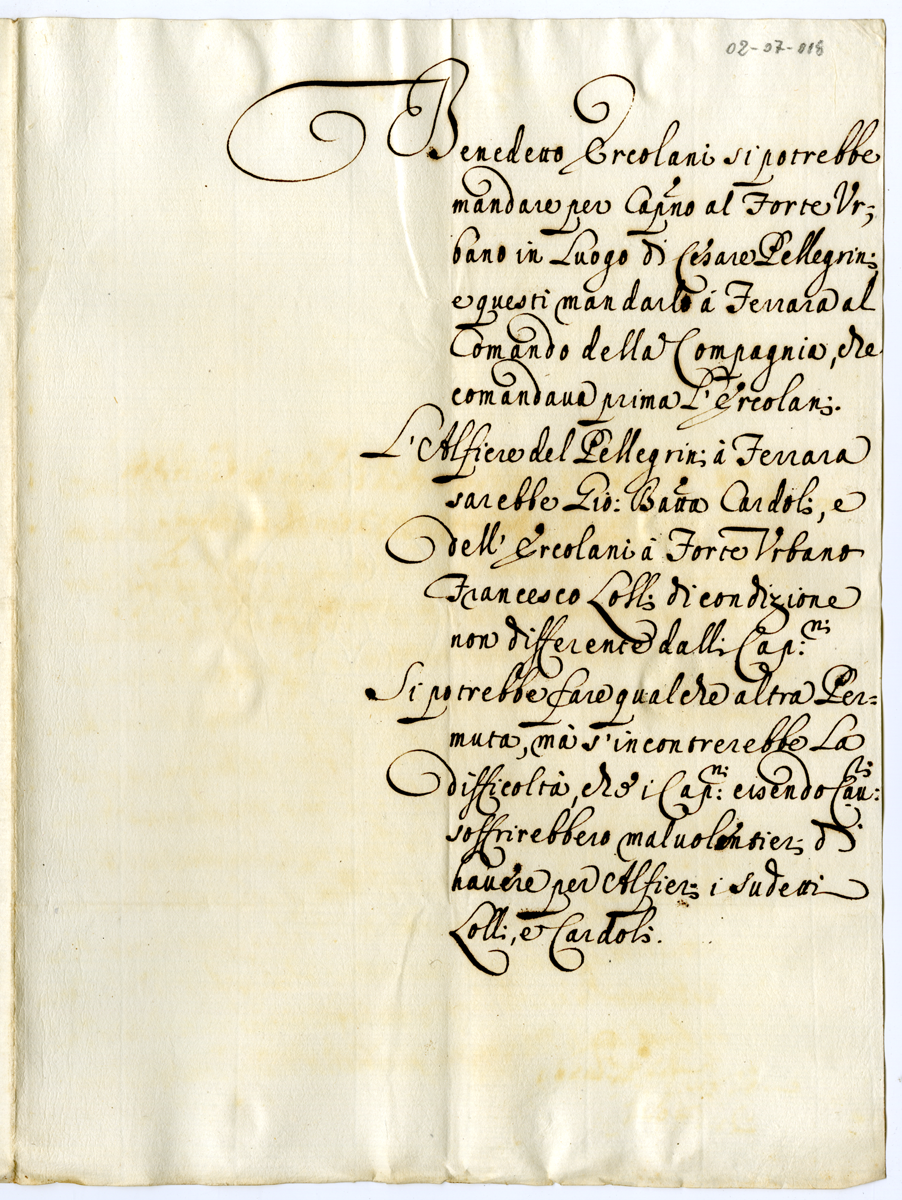 02-07-018
Benedetto Ercolani si potrebbe
mandare per Cap.no al Forte Vr=
bano in Luogo di Cesare Pellegrini
e questi mandarlo á Ferrara al
Comando della Compagnia, che
comandaua prima l'Ercolani.
L'Alfiere del Pellegrini à Ferrara
sarebbe Gio: Batta Cardoli, e
dell'Ercolani à Forte Vrbano
Francesco Lolli di condizione
non differente dalli Cap:ni
Si potrebbe fare qualche altra Per=
muta, mà s'incontrerebbe La
difficoltà, che i Cap:ni essendo Cau:ri
soffrirebbero maluolentieri di
hauere per Alfieri i sudetti
Lolli, e Cardoli.